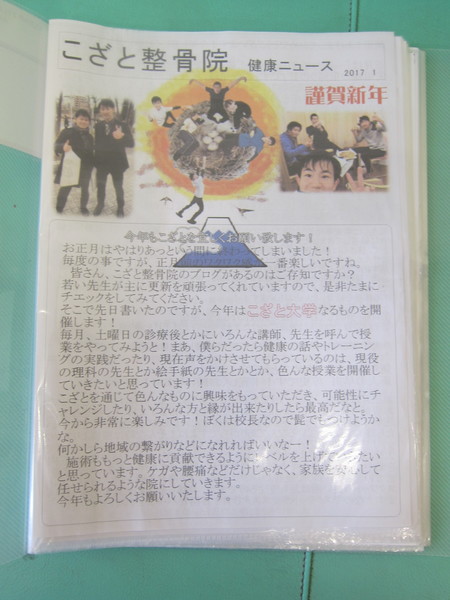 こざと整骨院 健康ニュース 2017 1
謹賀新年
今年もこざとを宜しくお願い致します!
お正月はやはりあっという間に終わってしまいました!
毎度の事ですが、正月 一番楽しいですね。
皆さん、こざと整骨院のブログがあるのはご存知ですか?
若い先生が主に更新を頑張ってくれていますので、是非たまに
チエックをしてみてください。
そこで先日書いたのですが、今年はこざと大学なるものを開
催します!
毎月、土曜日の診療後とかにいろんな講師、先生を呼んで授
業をやってみようと!まあ、僕らだったら健康の話やトレーニン
グの実践だったり、現在声をかけさせてもらっているのは、現役
の理科の先生とか絵手紙の先生とかとか、色んな授業を開催し
ていきたいと思っています!
こざとを通じて色んなものに興味をもっていただき、可能性にチ
ャレンジしたり、いろんな方と縁が出来たりしたら最高だなと。
今から非常に楽しみです!ぼくは校長なので髭でもつけようか
な。
何かしら地域の繋がりなどになれればいいなー!
施術ももっと健康に貢献できるようにレベルを上げていきたい
と思っています。ケガや腰痛などだけじゃなく、家族を安心して
任せられるような院にしていきます。
今年もよろしくお願いいたします。